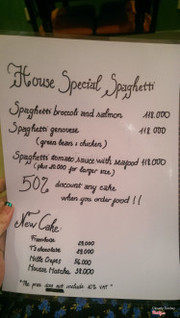 House Special Spaghetti
Spaghetti broccoli and salmon 118.000
Spaghetti genovese 118.000
(green beans & chicken)
Spaghetti tomato sauce with seafood 118.000
(plus 20.000 for larger size)
50% discount any cake
when you order food !!
New Cake
Framboise
Tschocolate
Mille Crepes
Mousse Matcha 58.000
"The price does not include 10% VAT"